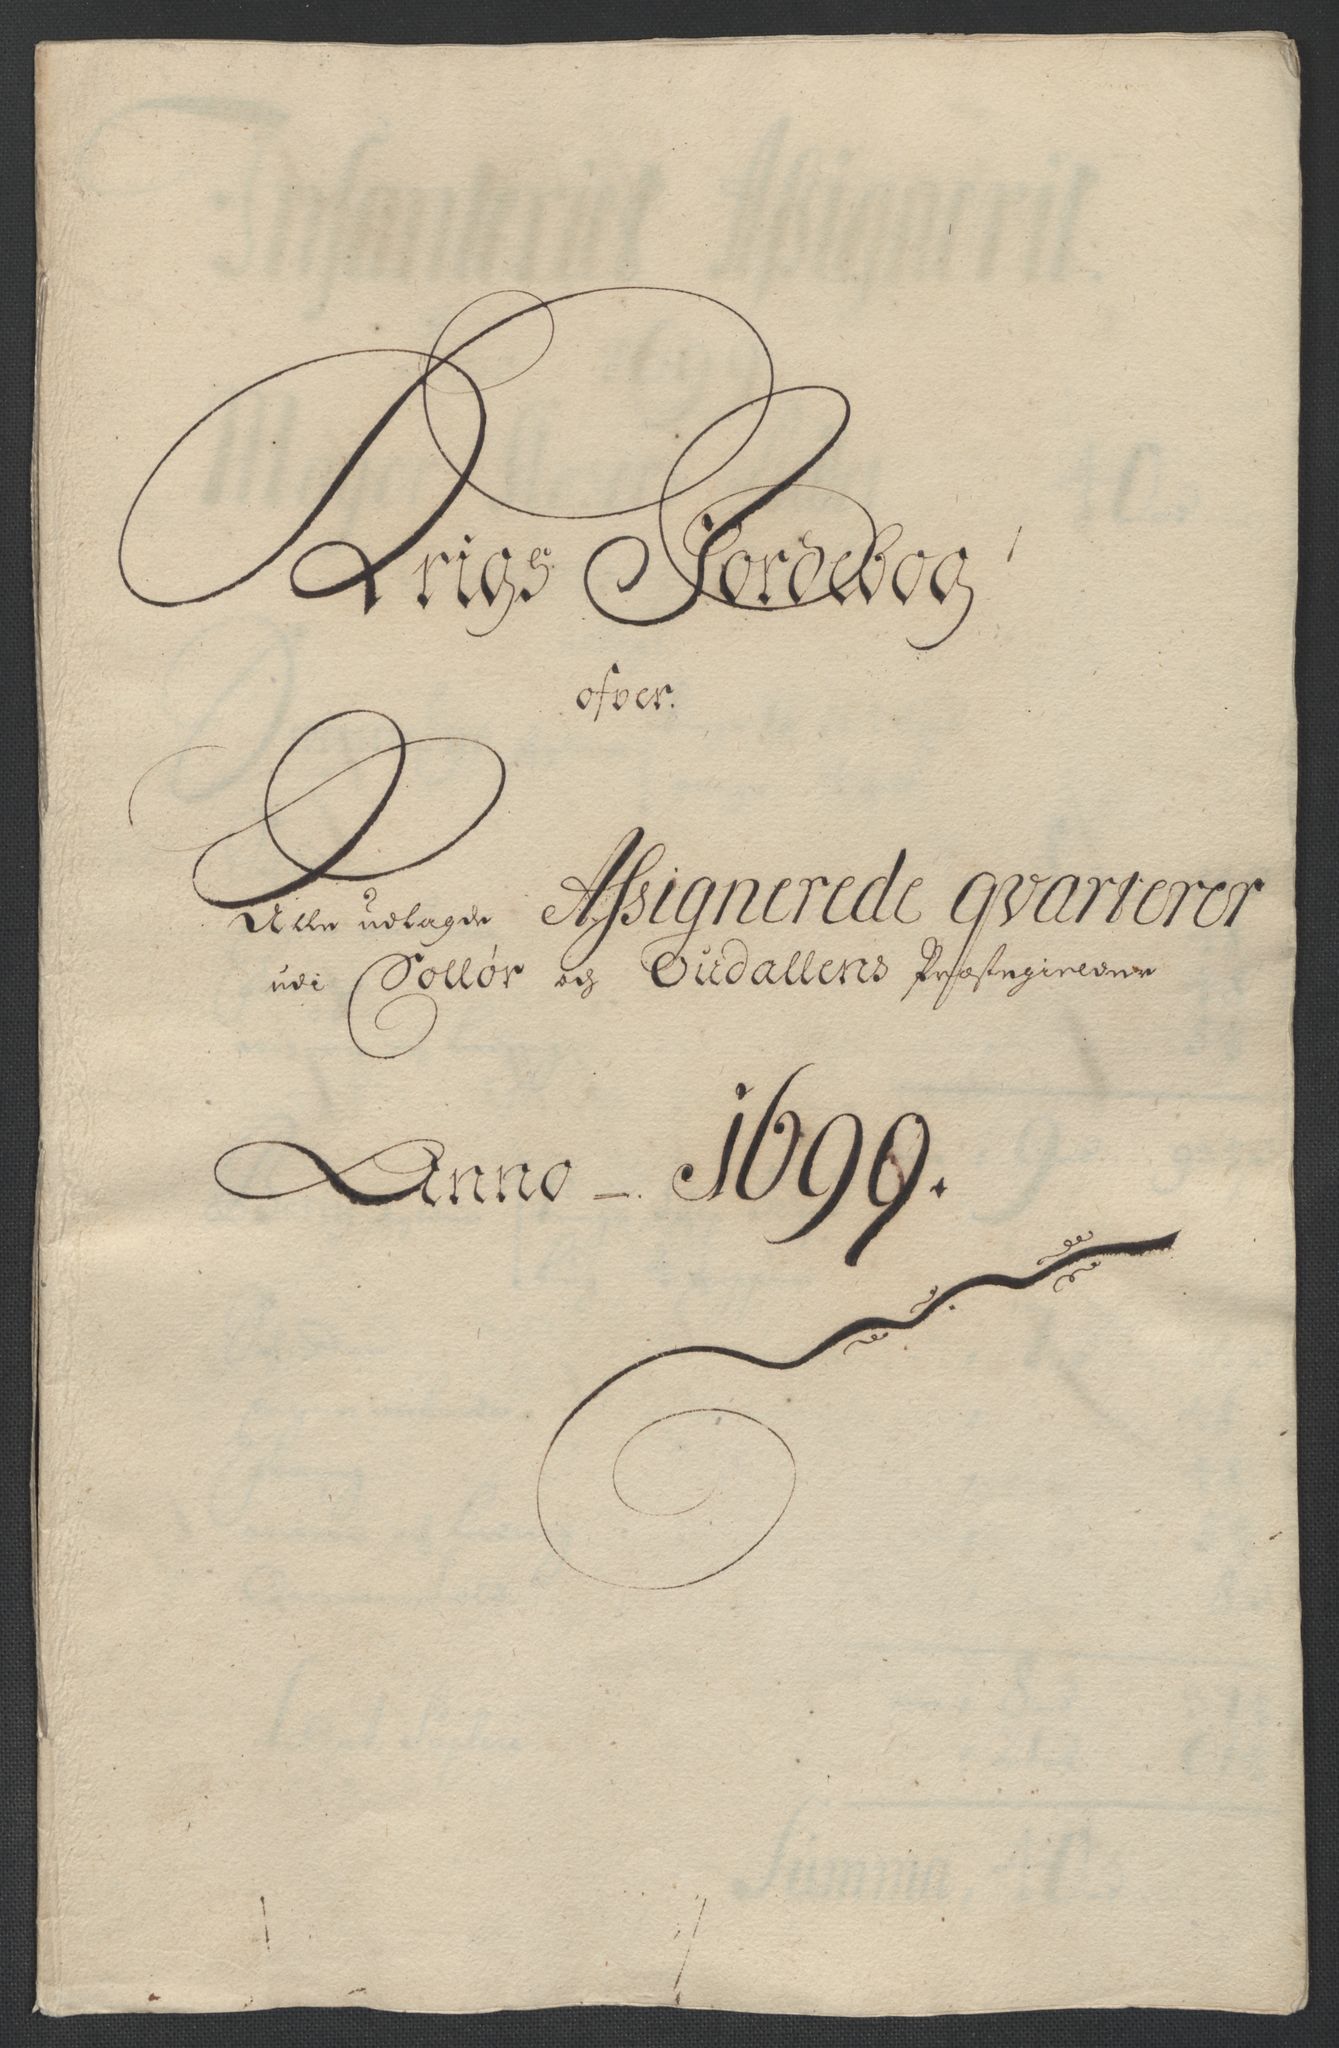 Krigs Jordebog
ofver.
Alle udlagde Assignerede qvarterer
udi Sollør og Oudallens Præstegielder
Anno - 1699.